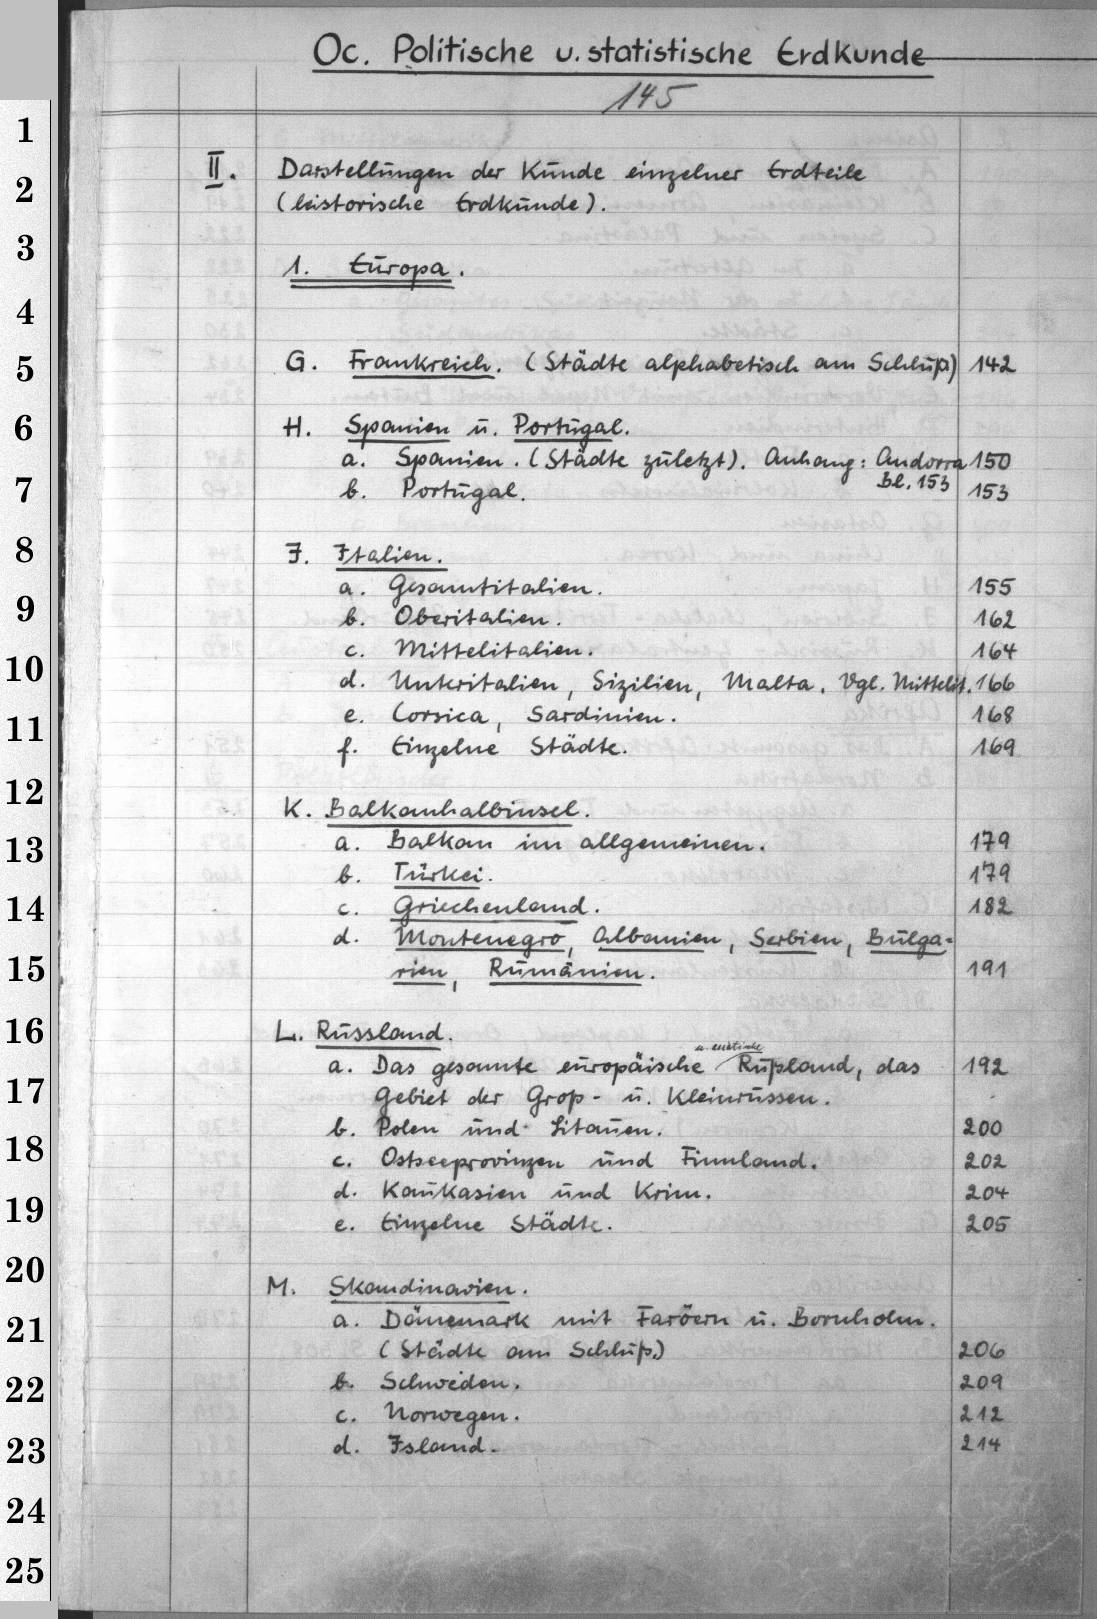 Oc. Politische u. statistische Erdkunde
145
II. Darstellungen der Kunde einzelner Erdteile
(historische Erdkunde).
1. Europa.
G. Frankreich. (Städte alphabetisch am Schluß) 142
H. Spanien u. Portugal.
a. Spanien. (Städte zuletzt). Anhang: Andorra 150
Bl. 153
b. Portugal. 153
J. Italien.
a. Gesamtitalien. 155
b. Oberitalien. 162
c. Mittelitalien. 164
d. Unteritalien, Sizilien, Malta. Vgl. Mittelit. 166
e. Corsica, Sardinien. 168
f. Einzelne Städte. 169
K. Balkanhalbinsel.
a. Balkan im allgemeinen. 179
b. Türkei. 179
c. Griechenland. 182
d. Montenegro, Albanien, Serbien, Bulga=
rien, Rumänien. 191
L. Russland.
u. asiatische
a. Das gesamte europäische Rußland, das 192
Gebiet der Groß- u. Kleinrussen.
b. Polen und Litauen. 200
c. Ostseeprovinzen und Finnland. 202
d. Kaukasien und Krim. 204
e. Einzelne Städte. 205
M. Skandinavien.
a. Dänemark mit Faröern u. Bornholm.
(Städte am Schluß.) 206
b. Schweden. 209
c. Norwegen. 212
d. Island. 214
1
2
3
4
5
6
7
8
9
10
11
12
13
14
15
16
17
18
19
20
21
22
23
24
25